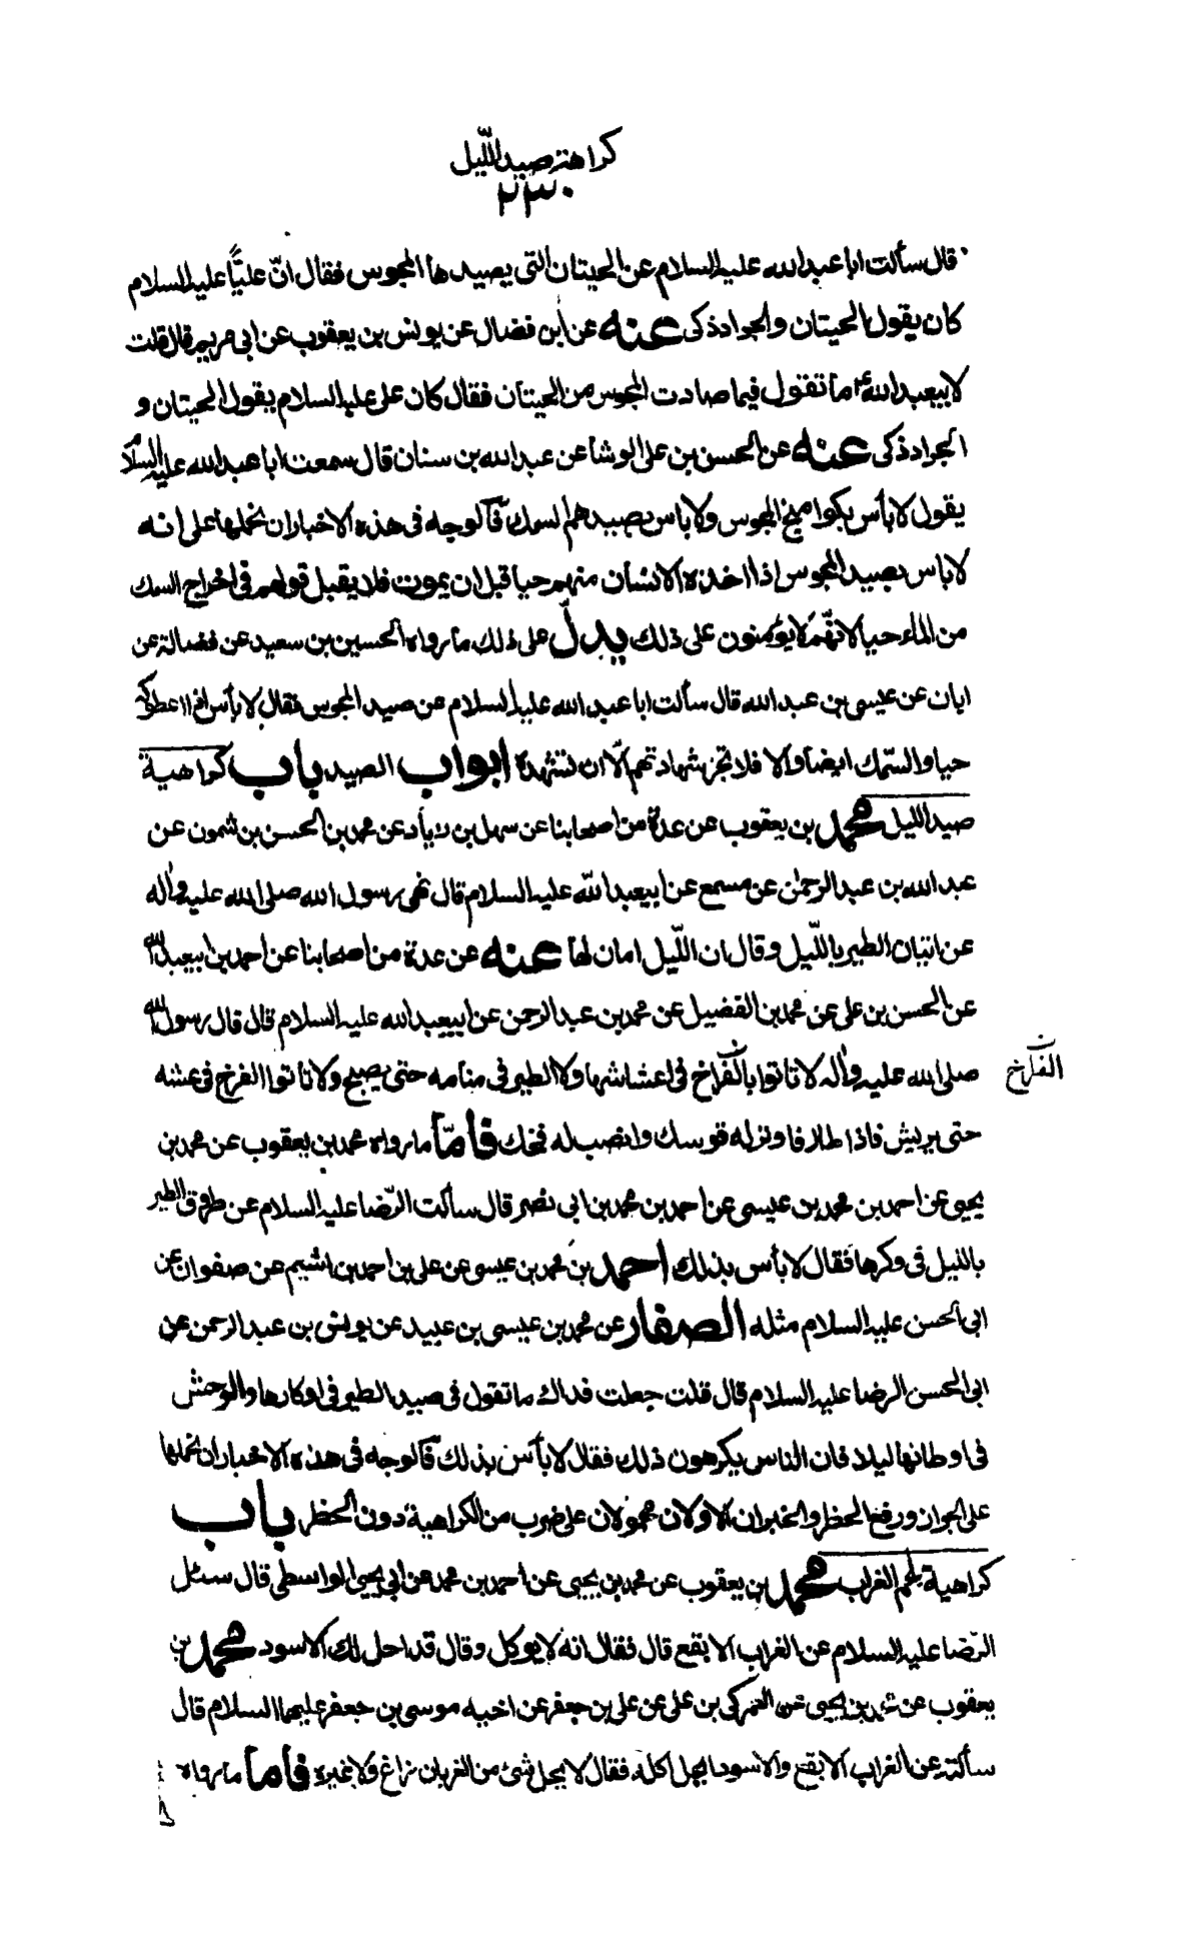 كراهة صيد الليل
٢٣٠
قال سألت ابا عبد الله عليه السلام عن الحيتان التي يصيدها المجوس فقال انّ عليًّا عليه السلام
كان يقول الحيتان والجراد ذكى عنه عن ابن فضال عن يونس بن يعقوب عن ابى مريم قال قلت
لابيعبد الله ع ما تقول فيما صادت المجوس من الحيتان فقال كان على عليه السلام يقول الحيتان و
الجراد ذكى عنه عن الحسن بن على الوشا عن عبد الله بن سنان قال سمعت ابا عبد الله عليه السلام
يقول لا بأس بكواميخ المجوس ولا باس بصيدهم السمك فالوجه فى هذه الاخبار ان نحملها على انه
لا باس بصيد المجوس اذا اخذه الانسان منهم حيا قبل ان يموت فلا يقبل قولهم فى اخراج السمك
من الماء حيا لانهّم لا يؤمنون على ذلك يدلّ على ذلك ما رواه الحسين بن سعيد عن فضالة عن
ابان عن عيسى بن عبد الله قال سألت ابا عبد الله عليه السلام عن صيد المجوس فقال لا بأس اذا اعطوكه
حيا والسّمك ايضا والا فلا تجز شهادتهم الّا ان تشهده ابواب الصيد باب كراهية
صيد الليل محمد بن يعقوب عن عدة من اصحابنا عن سهل بن زياد عن محمد بن الحسن بن شمون عن
عبد الله بن عبد الرحمن عن مسمع عن ابيعبد الله عليه السلام قال نهى رسول الله صلى الله عليه واله
عن اتيان الطير باللّيل وقال ان اللّيل امان لها عنه عن عدة من اصحابنا عن احمد بن ابيعبد الله
عن الحسن بن على عن محمد بن الفضيل عن محمد بن عبد الرحمن عن ابيعبد الله عليه السلام قال قال رسول الله
صلى الله عليه واله لا تاتوا بالفراخ فى اعشاشها ولا الطير فى منامه حتى يصبح ولا تاتوا الفرخ فى عشه
الفراخ ن
حتى يريش فاذا طار فاوتر له قوسك وانصب له فخك فأمّا ما رواه محمد بن يعقوب عن محمد بن
يحيى عن احمد بن محمد بن عيسى عن احمد بن محمد بن ابى نصر قال سألت الرّضا عليه السلام عن طروق الطير
بالليل فى وكرها فقال لا بأس بذلك احمد بن محمد بن عيسى عن على بن احمد بن اشيم عن صفوان عن
ابى الحسن عليه السلام مثله الصفار عن محمد بن عيسى بن عبيد عن يونس بن عبد الرحمن عن
ابى الحسن الرضا عليه السلام قال قلت جعلت فداك ما تقول فى صيد الطير فى اوكارها والوحش
فى اوطانها ليلا فان الناس يكرهون ذلك فقال لا بأس بذلك فالوجه فى هذه الاخبار ان نحملها
على الجواز ورفع الحظر والخبران الاولان محمولان على ضرب من الكراهية دون الحظر باب
كراهية لحم الغراب محمد بن يعقوب عن محمد بن يحيى عن احمد بن محمد عن ابى يحيى الواسطى قال سئل
الرّضا عليه السلام عن الغراب الابقع قال فقال انه لا يوكل وقال قد احل لك الاسود محمد بن
يعقوب عن محمد بن يحيى عن العمركى بن على عن على بن جعفر عن اخيه موسى بن جعفر عليهما السلام قال
سألته عن الغراب الابقع والاسود ايحل اكله فقال لا يحل شئ من الغربان زاغ ولا غيره فأما ما رواه